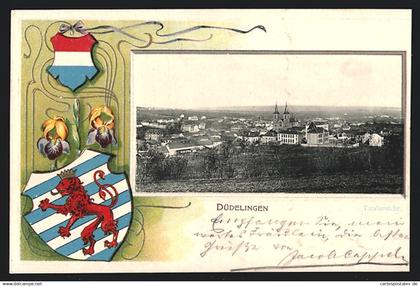 DÜDELINGEN
Totalansicht.
Empfangen Sie mein
wertes Fräulein die besten
Grüße von Jacob Cappel